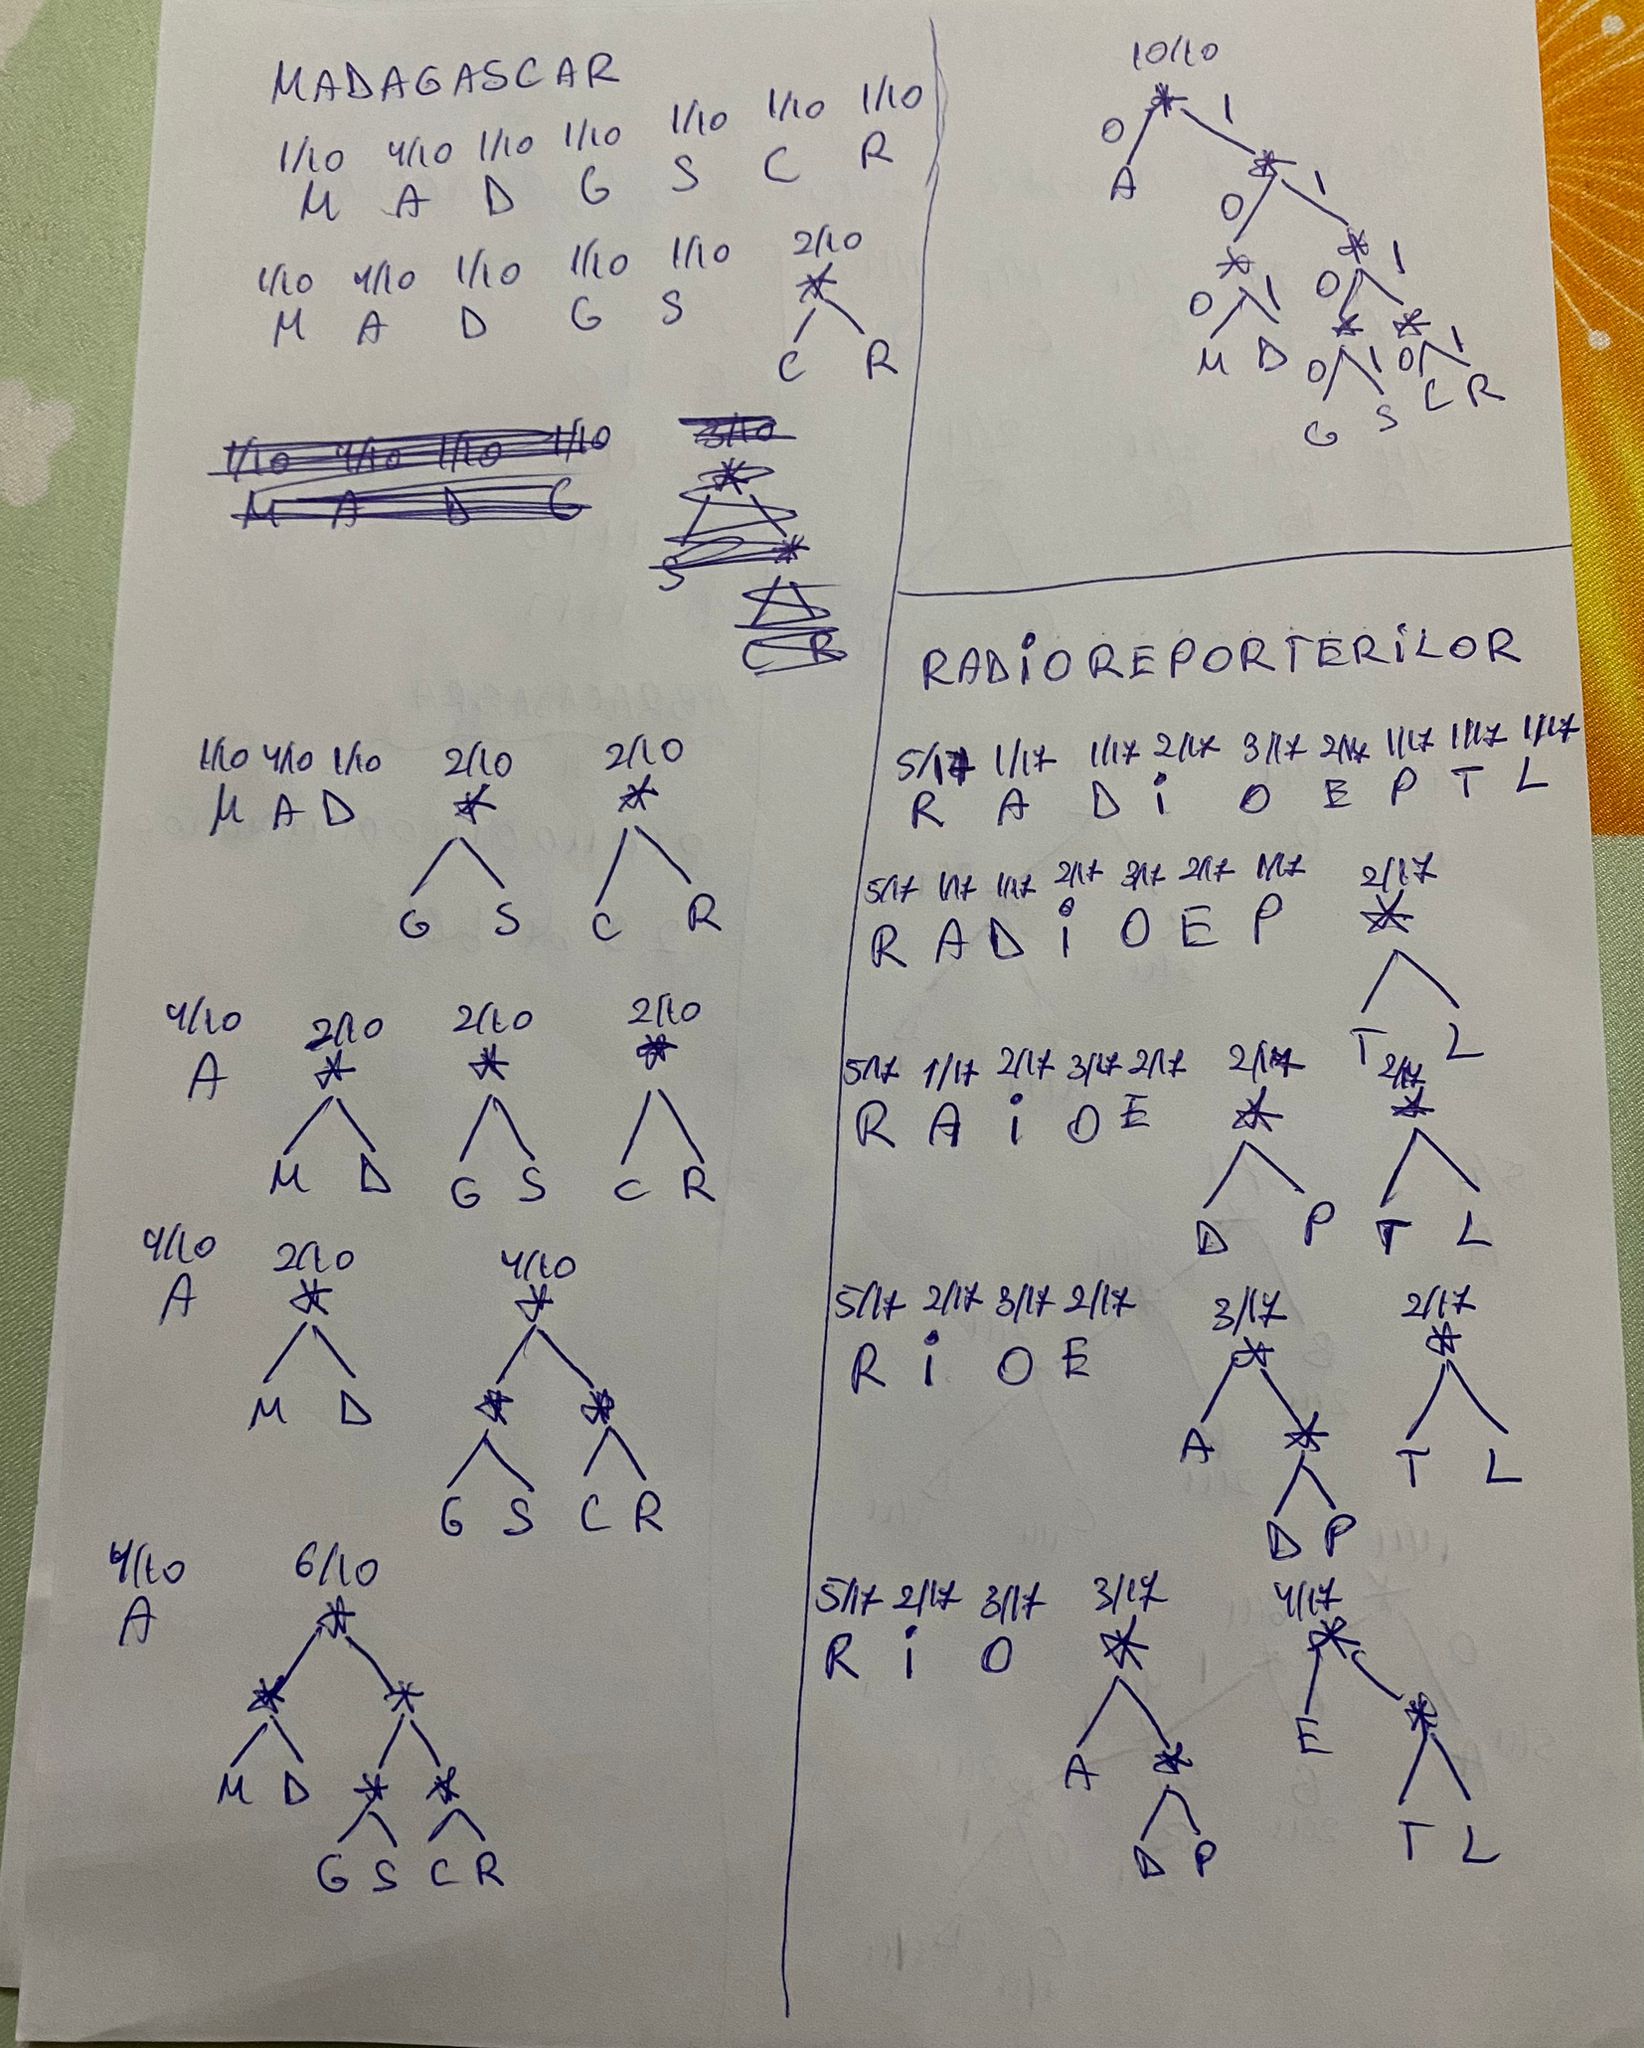 MADAGASCAR
1/10 4/10 1/10 1/10 1/10 1/10 1/10
M A D G S C R
1/10 4/10 1/10 1/10 1/10 2/10
M A D G S *
C R
1/10 4/10 1/10 1/10 3/10
M A D G *
S *
C R
1/10 4/10 1/10 2/10 2/10
M A D * *
G S C R
4/10 2/10 2/10 2/10
A * * *
M D G S C R
4/10 2/10 4/10
A * *
M D * *
G S C R
4/10 6/10
A *
* *
M D * *
G S C R
10/10
*
0 1
A *
0 1
* *
0 1 0 1
M D * *
0 1 0 1
G S C R
RADiOREPORTERiLOR
5/17 1/17 1/17 2/17 3/17 2/17 1/17 1/17 1/17
R A D i O E P T L
5/17 1/17 1/17 2/17 3/17 2/17 1/17 2/17
R A D i O E P *
T L
5/17 1/17 2/17 3/17 2/17 2/17 2/17
R A i O E * *
D P T L
5/17 2/17 3/17 2/17 3/17 2/17
R i O E * *
A * T L
D P
5/17 2/17 3/17 3/17 4/17
R i O * *
A * E *
D P T L